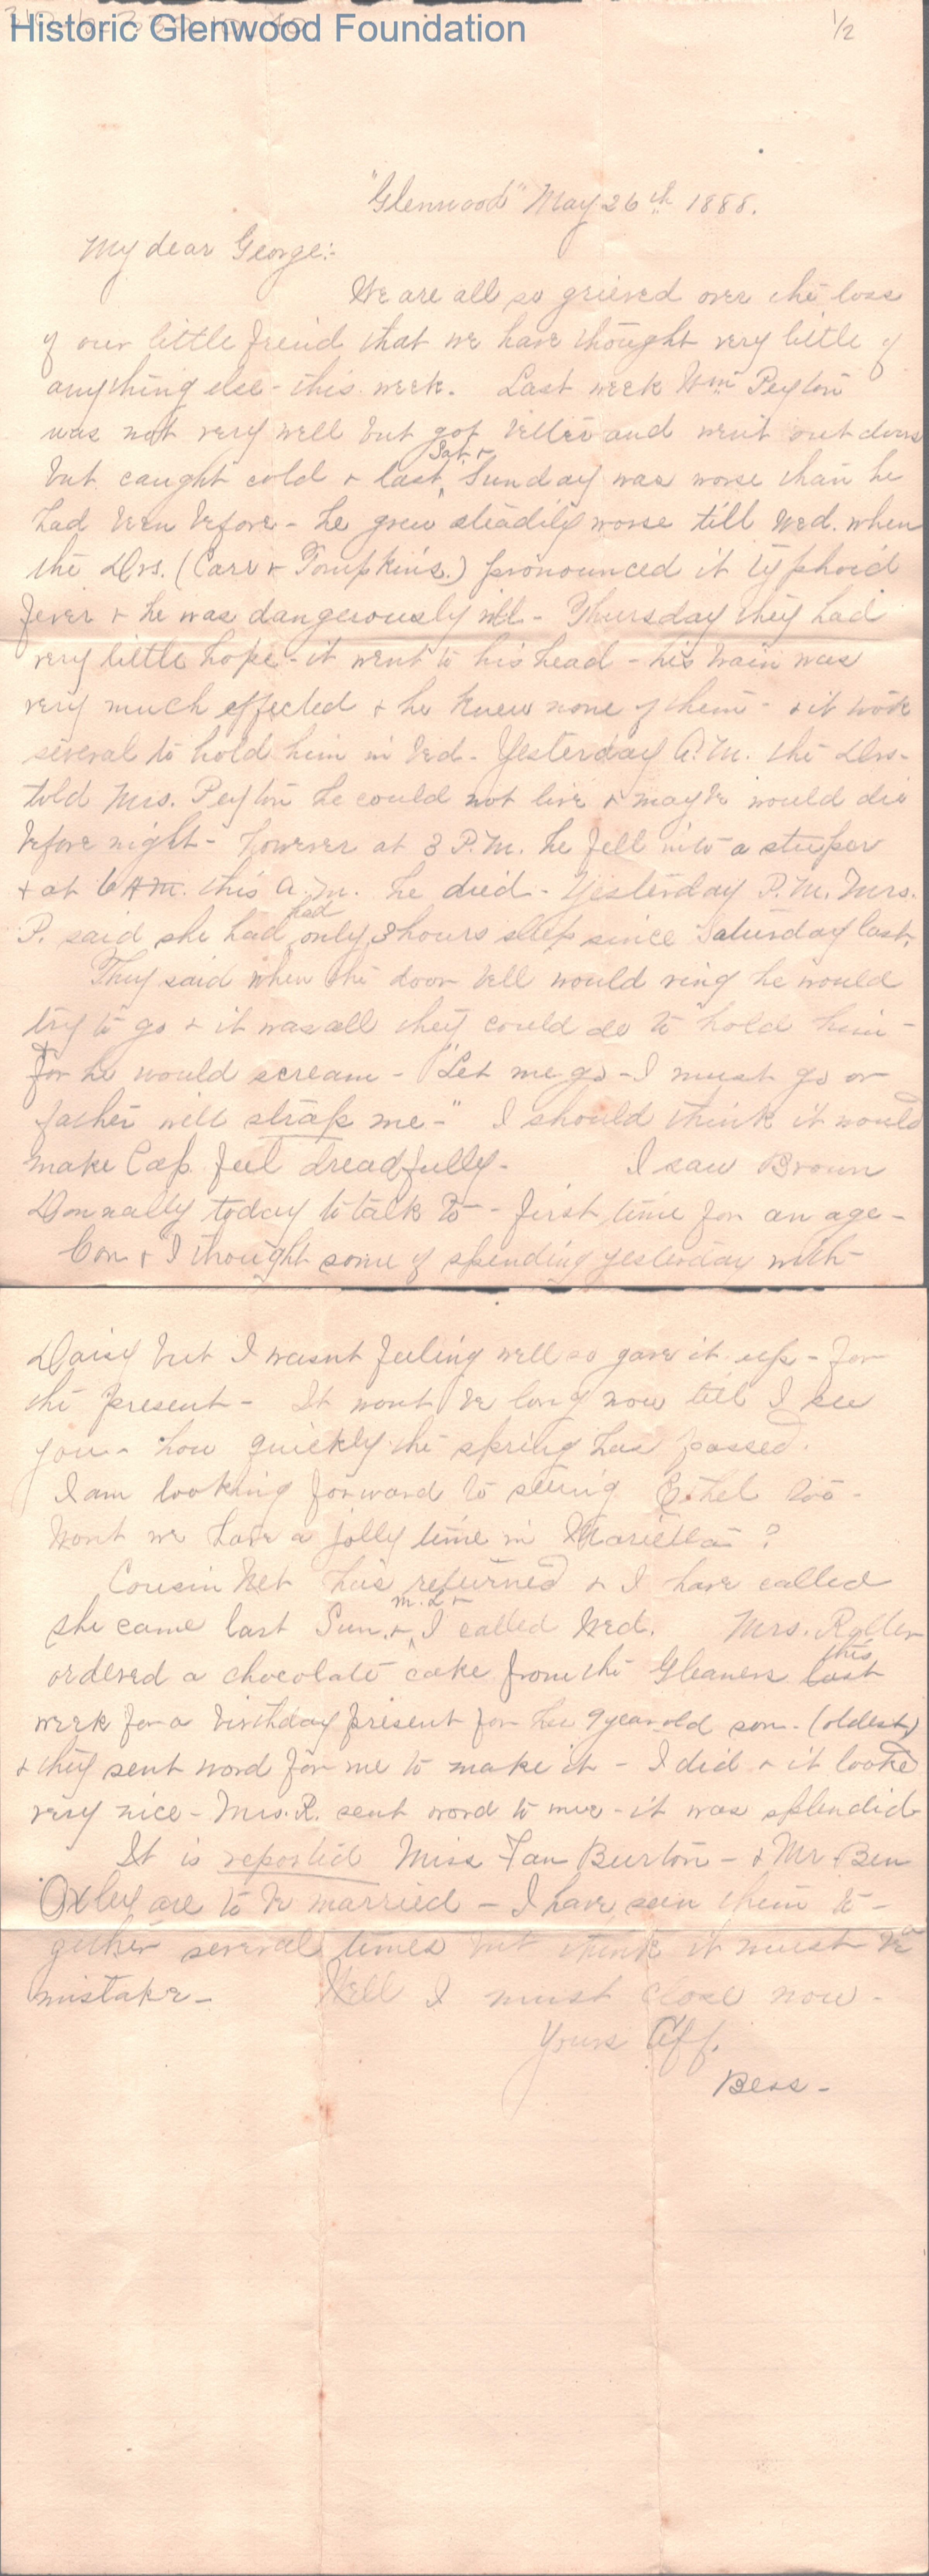 Historic Glenwood Foundation
1/2
"Glenwood" May 26th 1888.
My dear George:-
We are all so grieved over the loss
of our little freind that we have thought very little of
anything else - this week. Last week Wm Peyton
was not very well but got better and went out doors
but caught cold + last Sat. + Sunday was worse than he
had been before - he grew steadily worse till Wed. when
the Drs. (Carr + Tompkins.) pronounced it typhoid
fever + he was dangerously ill - Thursday they had
very little hope - it went to his head - his brain was
very much effected + he knew none of them - + it took
several to hold him in bed - Yesterday A.M. the Drs.
told Mrs. Peyton he could not live + maybe would die
before night - however at 3 P.M. he fell into a stupor
+ at 6 this A.M. he died - Yesterday P.M. Mrs.
P. said she had had only 3 hours sleep since Saturday last.
They said when the door bell would ring he would
try to go + it was all they could do to hold him -
for he would scream - "Let me go - I must go or
father will strap me -" I should think it would
make Cap. feel dreadfully - I saw Brown
Donnally today to talk to - first time for an age -
Con + I thought some of spending yesterday with
Daisy but I wasnt feeling well so gave it up - for
the present - It wont be long now till I see
you - how quickly the spring has passed.
I am looking forward to seeing Ethel too -
Wont we have a jolly time in Marietta ?
Cousin Net has returned + I have called
she came last Sun. + M. L + I called Wed. Mrs. Roller
ordered a chocolate cake from the Gleaners last this
week for a birthday present for her 9 year old son - (oldest)
+ they sent word for me to make it - I did + it looked
very nice - Mrs. R. sent word to me - it was splendid
It is reported Miss Fan Burton - + Mr Ben
Oxley are to be married - I have seen them to -
gether several times but think it must be a
mistake - Well I must close now -
Yours Aff.
Bess -